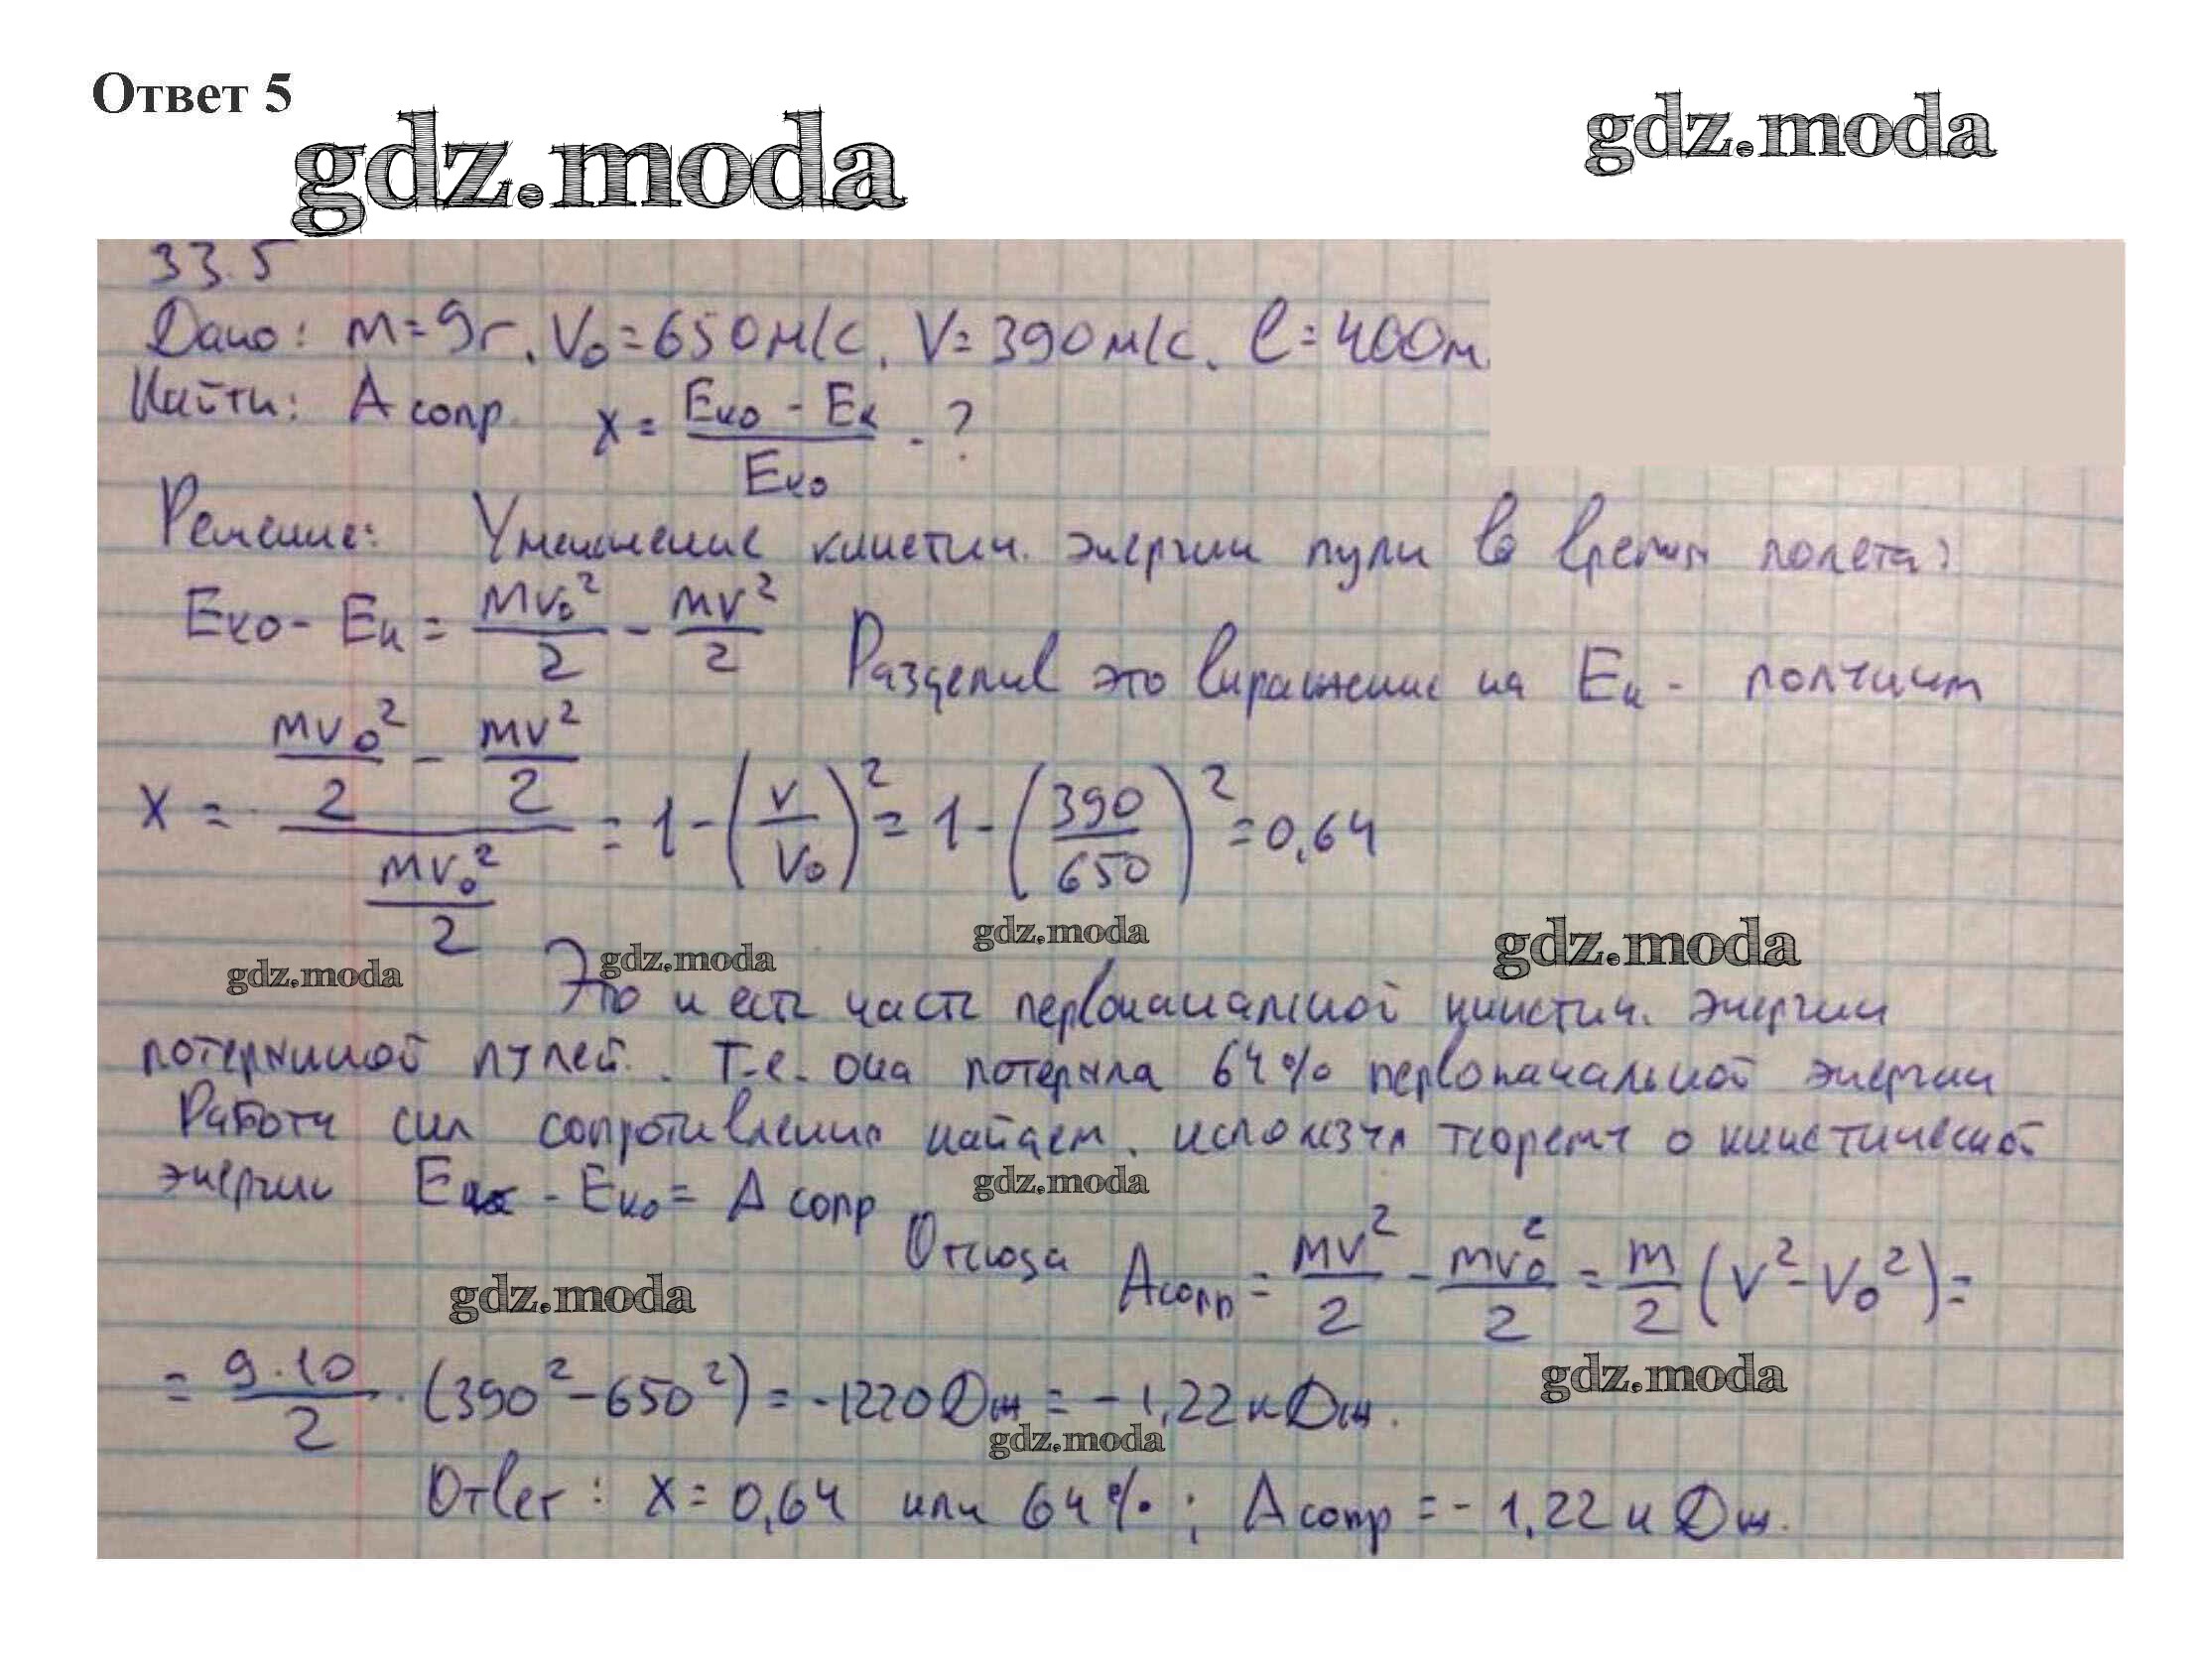 Ответ 5
gdz.moda
gdz.moda
33.5
Дано: m=9г, V₀=650м/с, V=390м/с, l=400м
Найти: A сопр. x = (Eко - Eк)/Eко - ?
Решение: Уменьшение кинетич. энергии пули во время полета:
Eко - Eк = mv₀²/2 - mv²/2 Разделив это выражение на Eк - полчиим
x = (mv₀²/2 - mv²/2)/(mv₀²/2) = 1-(v/v₀)² = 1-(390/650)² = 0,64
gdz.moda
gdz.moda
gdz.moda
gdz.moda
Это и есть часть первоначальной кинетич. энергии
потерянной пулей. Т.е. она потеряла 64% первоначальной энергии
Работу сил сопротивления найдем, используя теорему о кинетической
gdz.moda
энергии Eк - Eко = A сопр
Отсюда Aсопр = mv²/2 - mv₀²/2 = m/2 (v²-v₀²) =
gdz.moda
= 9·10/2 · (390²-650²) = -1220 Дж = -1,22 кДж.
gdz.moda
gdz.moda
Ответ: x=0,64 или 64%; A сопр = -1,22 кДж.